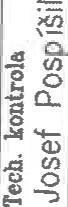 Tech. kontrola
Josef Pospíšil